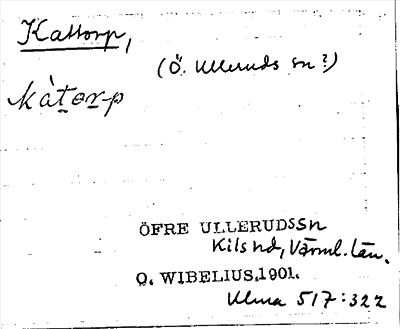 Kattorp,
(Ö. Ulleruds sn?)
kàtorp
ÖFRE ULLERUDS sn
Kils hd, Värml. län.
O. WIBELIUS. 1901.
Ulma 517:322